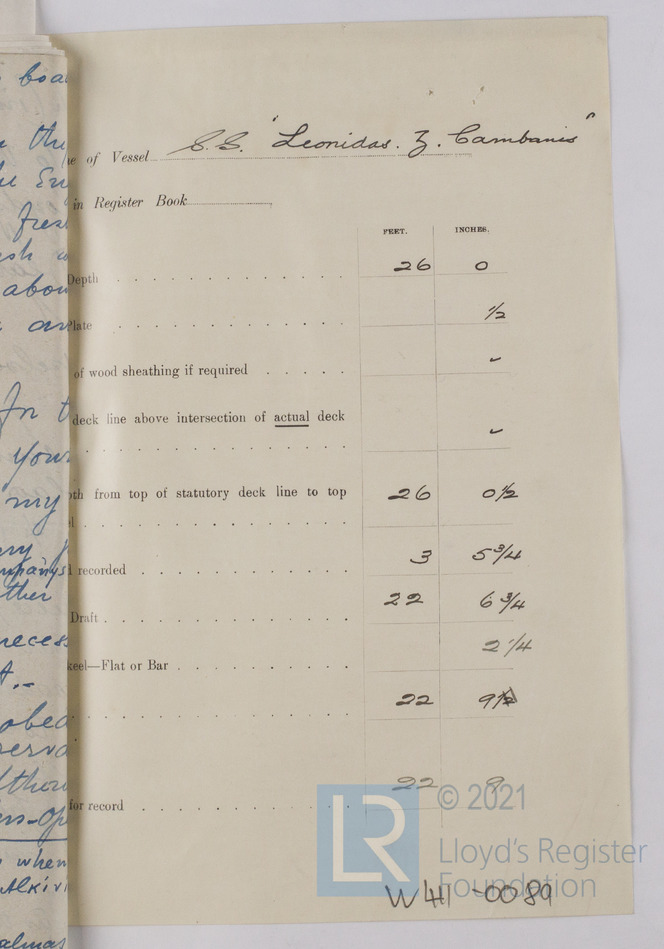 boa
the
Em
fres
sh
abou
an
In t
your
my
ompanys
ther
necess
t.-
obed
serva
thou
rs-Op
when
Alkivi
almas
e of Vessel S.S. "Leonidas. Z. Cambanis"
in Register Book
FEET. INCHES.
Depth 26 0
Plate 1/2
of wood sheathing if required ✓
deck line above intersection of actual deck
✓
th from top of statutory deck line to top 26 0 1/2
l
l recorded 3 5 3/4
Draft 22 6 3/4
keel—Flat or Bar 2 1/4
22 9
for record 22
© 2021
LR Lloyd's Register
Foundation
W411-0089